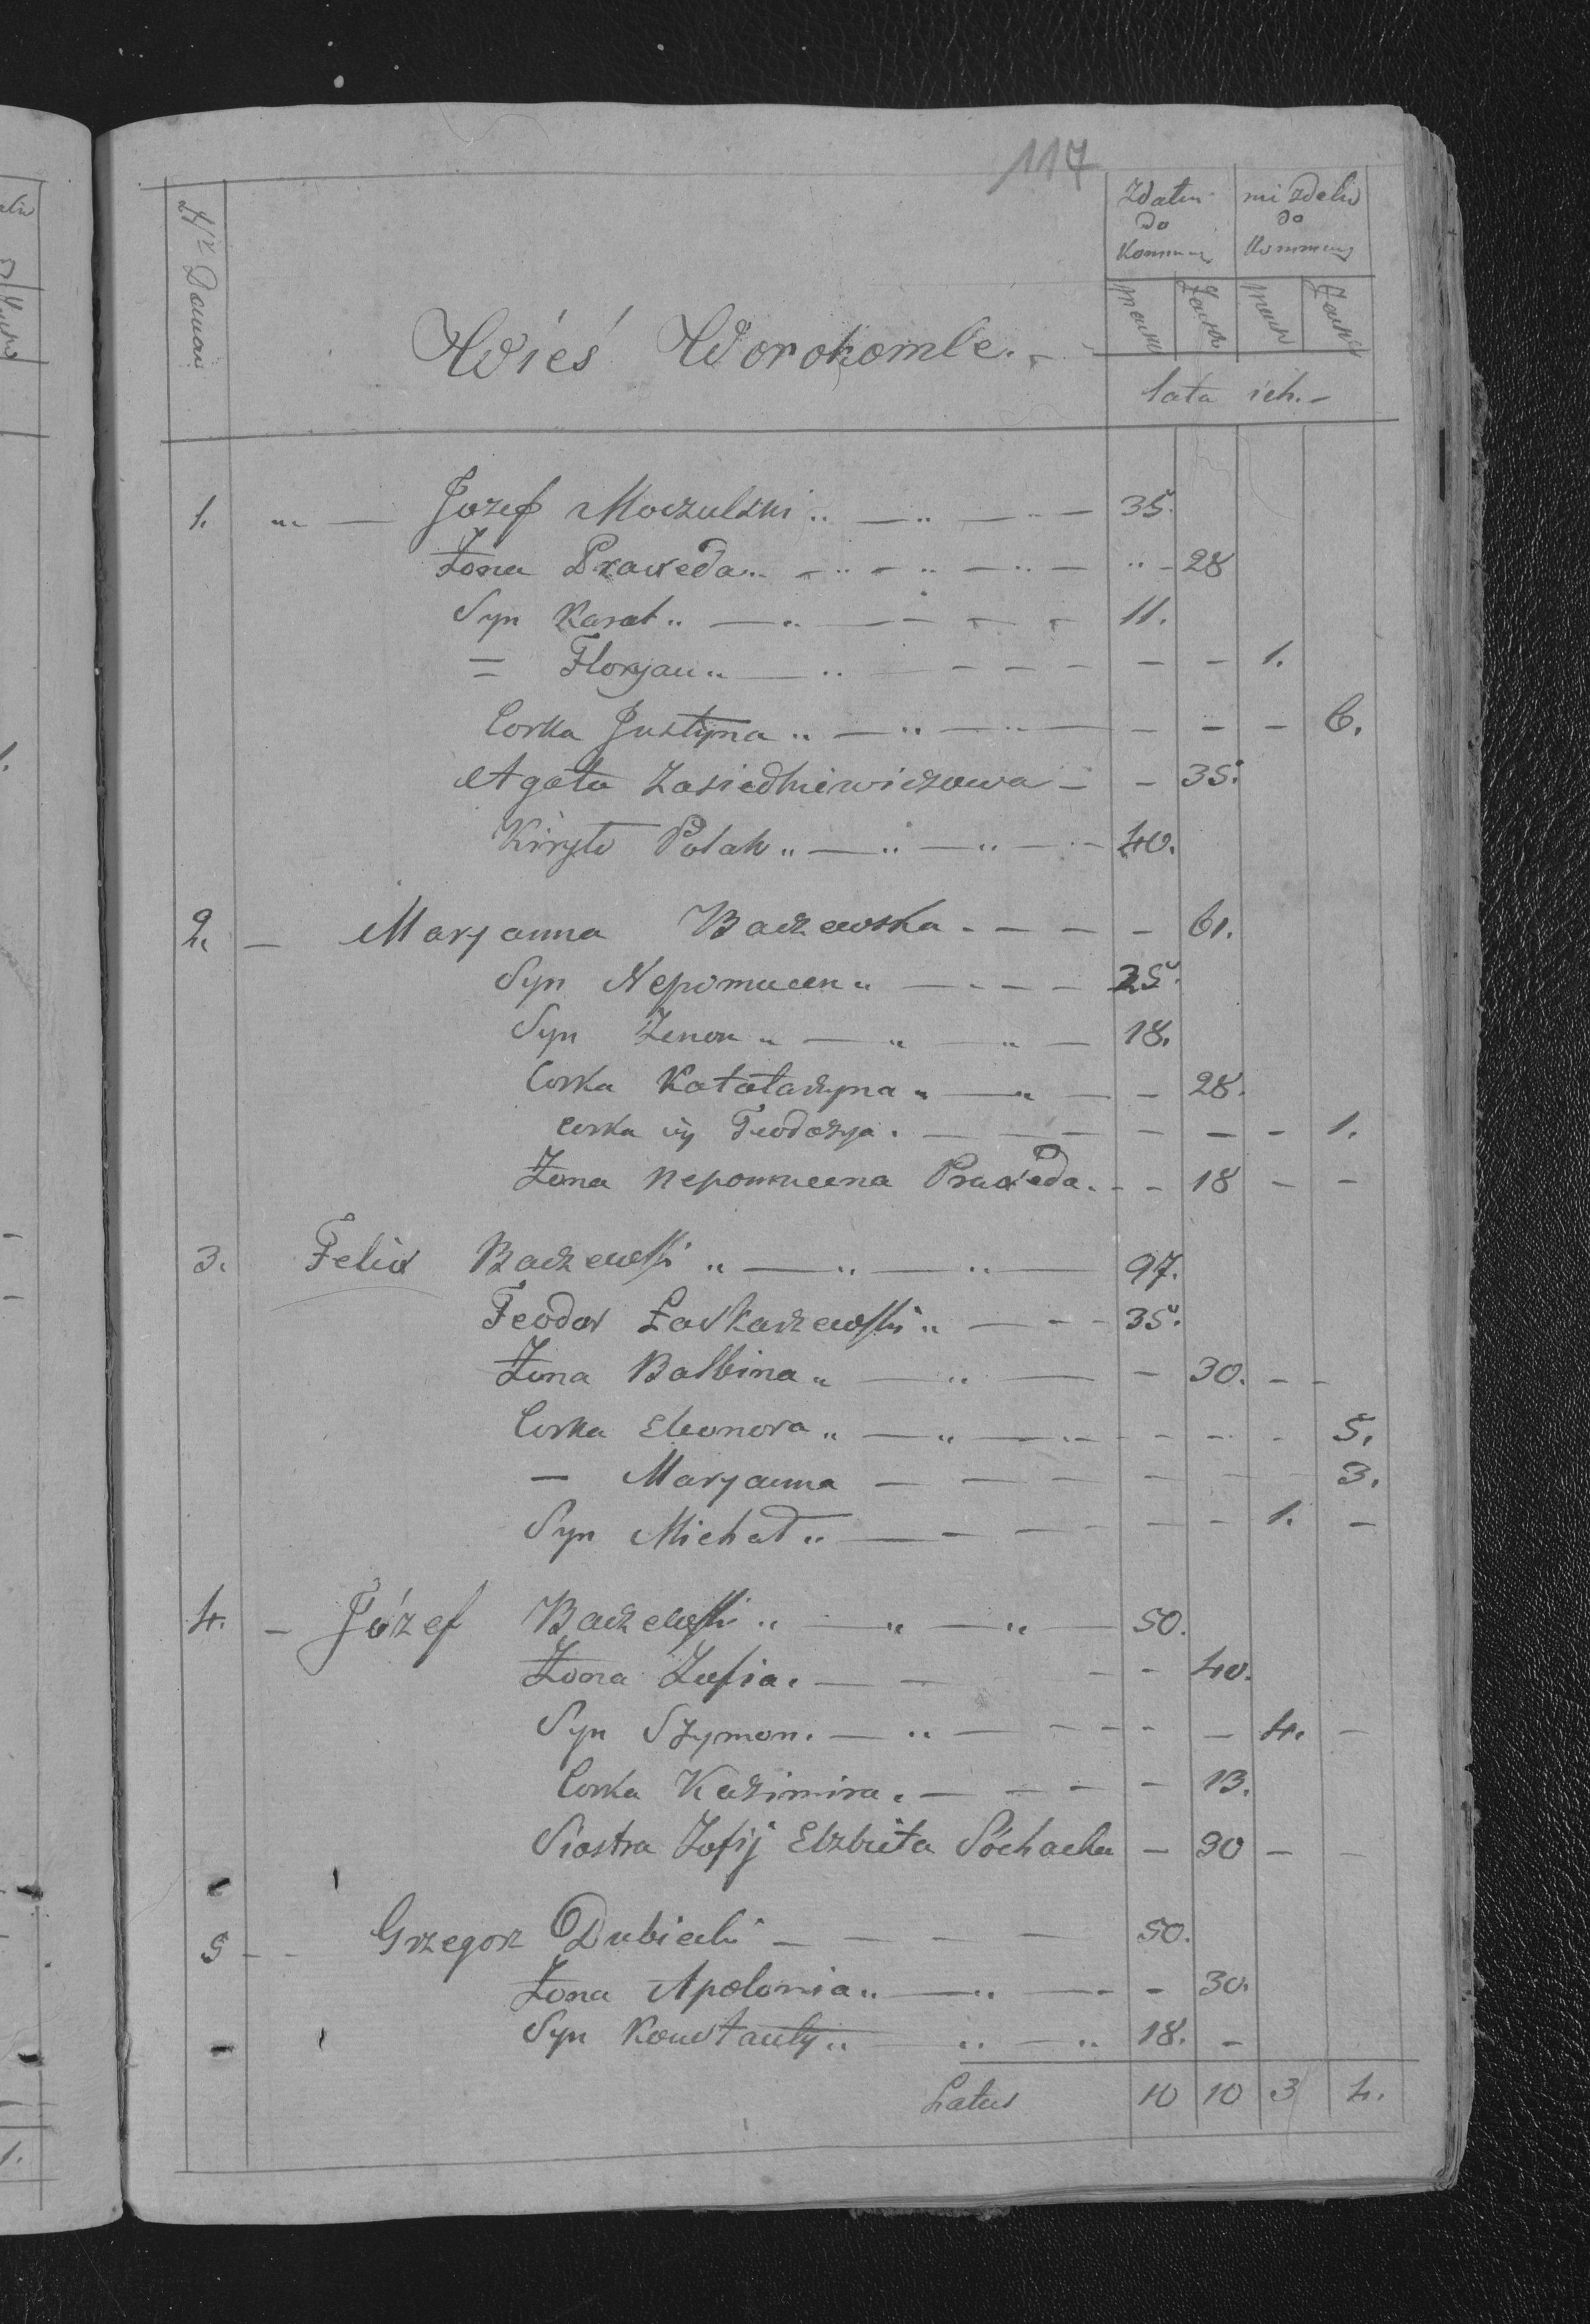 117
Nr Domow
Zdatni do Kommuny
nie zdatni do Kommuny
Wieś Worokomle.
lata ich.
1. Jozef Moczulski 35.
Żona Praxeda 28
Syn Karol 11.
= Floryan 1.
Corka Justyna 6.
Agata 35.
Kiryło Polak 40.
2. Maryanna Baczewska 61.
Syn Nepomucen 25.
Syn Zenon 18.
Corka Katatarzyna 28.
corka iéj Teodozya 1.
Żona Nepomucena Praxeda 18
3. Felix Baczewski 97.
Teodor Laskarzewski 35.
Żona Balbina 30.
Corka Eleonora 5.
— Maryanna 3.
Syn Michał 1.
4. Józef Baczewski 50.
Żona Zofia 40.
Syn Szymon 4.
Corka Kazimira 13.
Siostra Zofij Elzbieta Sochacka 30
5 Grzegorz Dubiecki 50.
Żona Apolonia 30.
Syn Konstanty 18.
Latus 10 10 3 4.